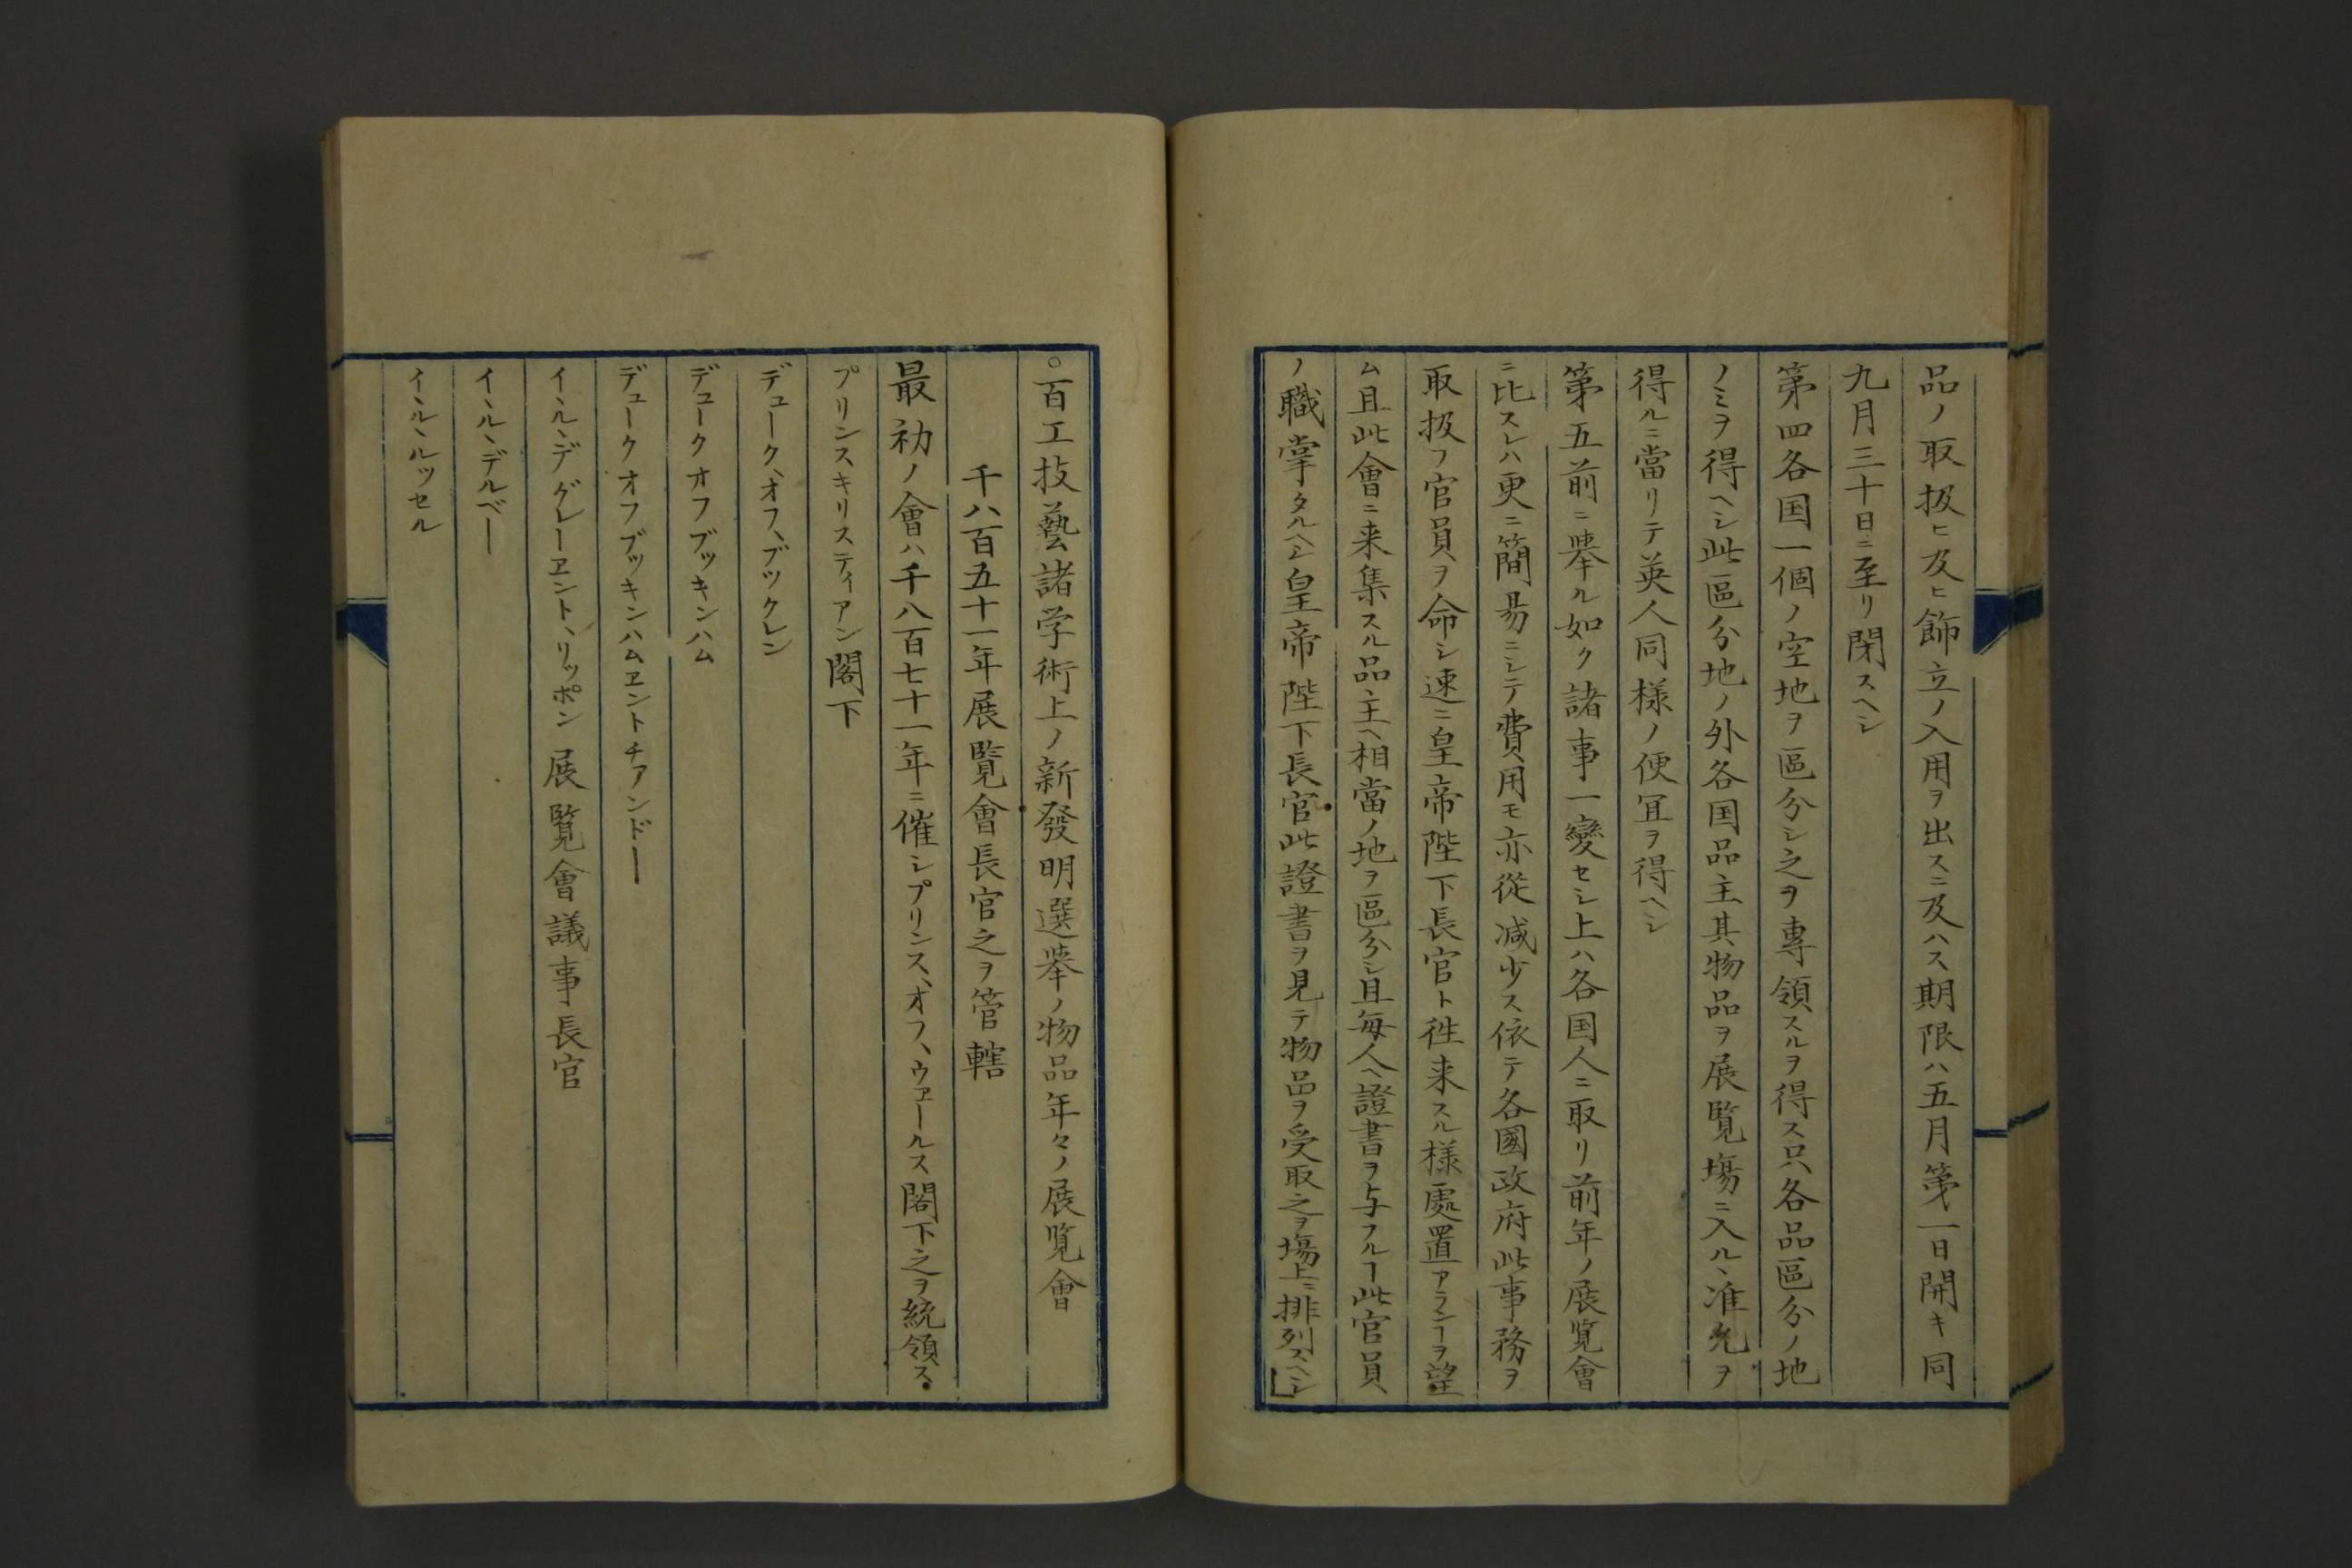 品ノ取扱ヒ及ヒ飾立ノ入用ヲ出スニ及ハス期限ハ五月第一日開キ同
九月三十日ニ至リ閉スヘシ
第四各国一個ノ空地ヲ區分シ之ヲ專領スルヲ得ス只各品區分ノ地
ノミヲ得ヘシ此區分地ノ外各国品主其物品ヲ展覧塲ニ入ルヽ准允ヲ
得ルニ當リテ英人同樣ノ便冝ヲ得ヘシ
第五前ニ擧ル如ク諸事一變セシ上ハ各国人ニ取リ前年ノ展覧會
ニ比スレハ更ニ簡昜ニシテ費用モ亦從减少ス依テ各國政府此事務ヲ
取扱フ官員ヲ命シ速ニ皇帝陛下長官ト徃来スル様處置アランヿヲ望
ム且此會ニ来集スル品主ヘ相當ノ地ヲ區分シ且毎人ヘ證書ヲ与フルヿ此官員
ノ職掌タルヘシ皇帝陛下長官此證書ヲ見テ物品ヲ受取之ヲ塲上ニ排列スヘシ」
○百工技藝諸学術上ノ新發明選擧ノ物品年々ノ展覧會
千八百五十一年展覧會長官之ヲ管轄
最初ノ會ハ千八百七十一年ニ催シプリンス、オフ、ウェールス閣下之ヲ統領ス
プリンスキリスティアン閣下
デューク、オフ、ブックレン
デュークオフブッキンハム
デュークオフブッキンハムエントチアンドー
イールヽデグレーエント、リッポン展覧會議事長官
イールヽデルベー
イールヽルッセル